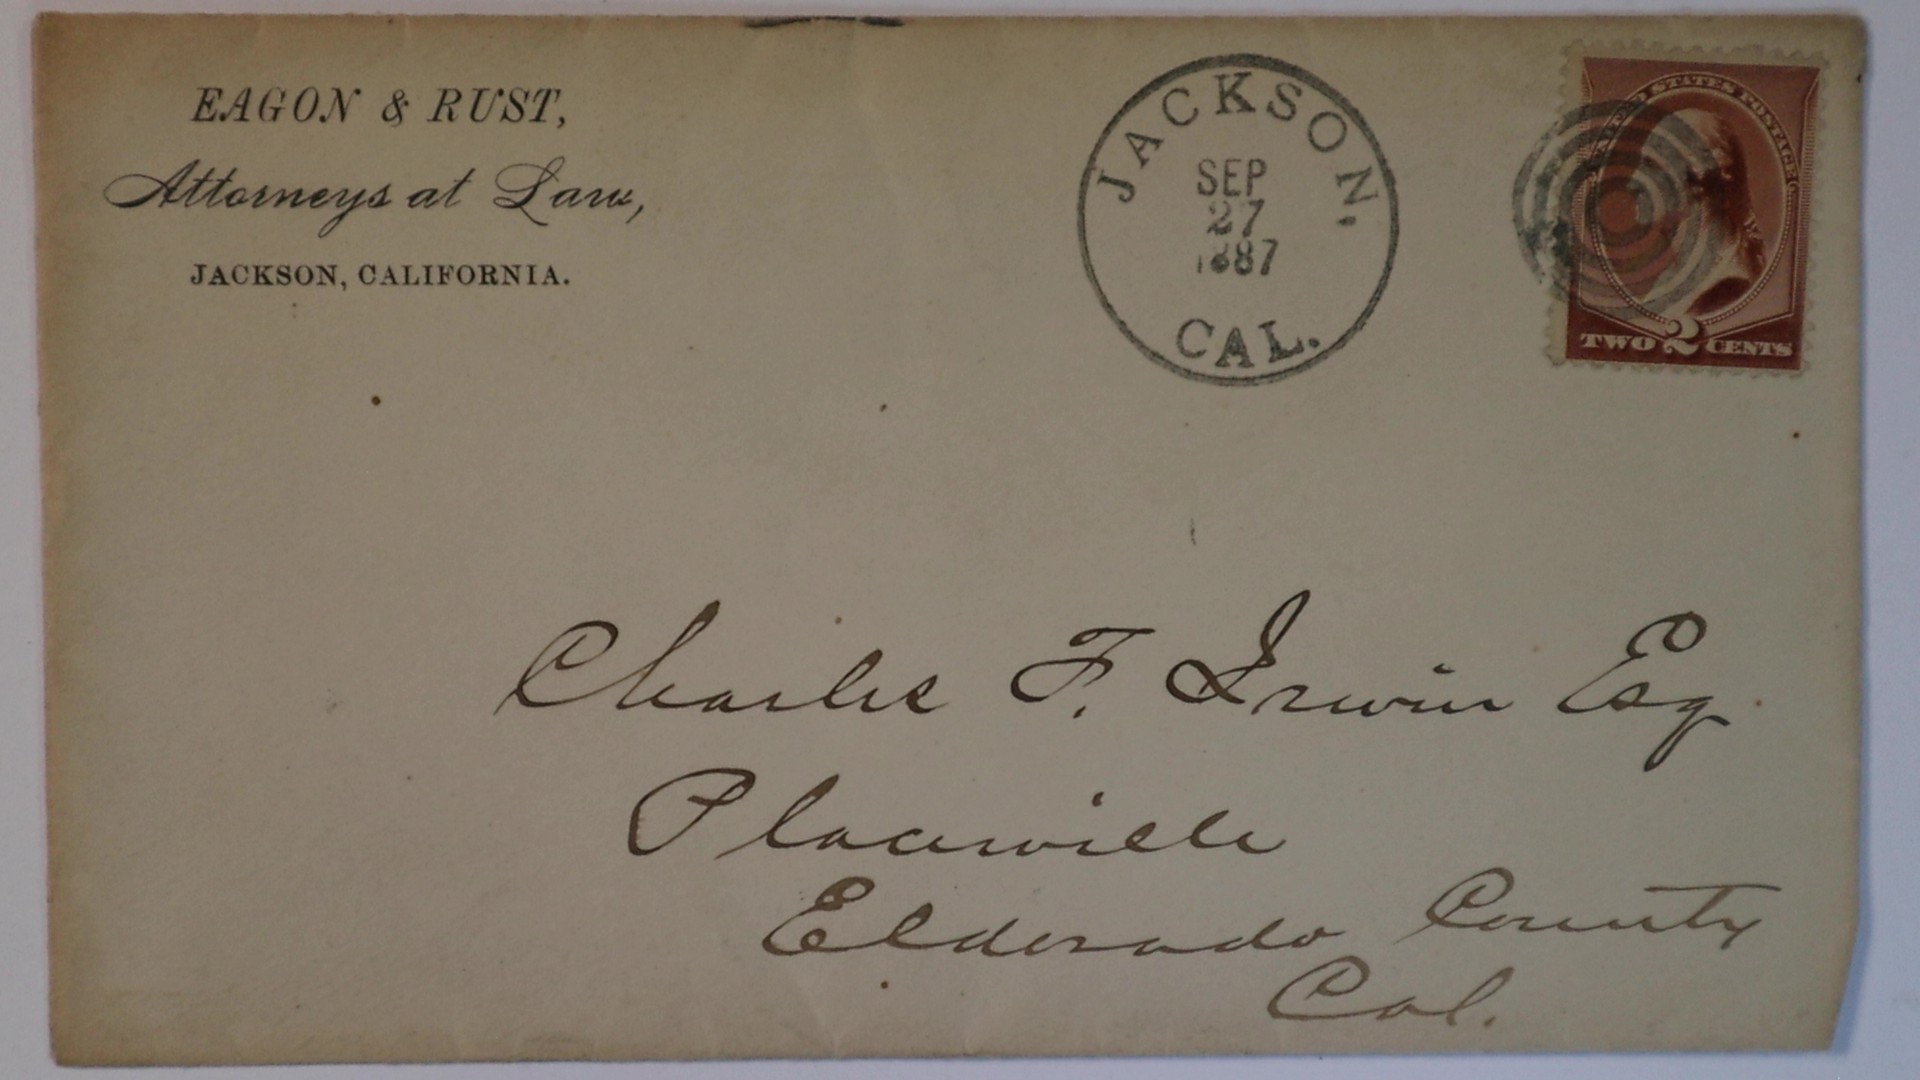 EAGON & RUST,
Attorneys at Law,
JACKSON, CALIFORNIA.
JACKSON,
SEP
27
1887
CAL.
UNITED STATES POSTAGE
TWO 2 CENTS
Charles F. Irwin Esq
Placerville
Eldorado County
Cal.